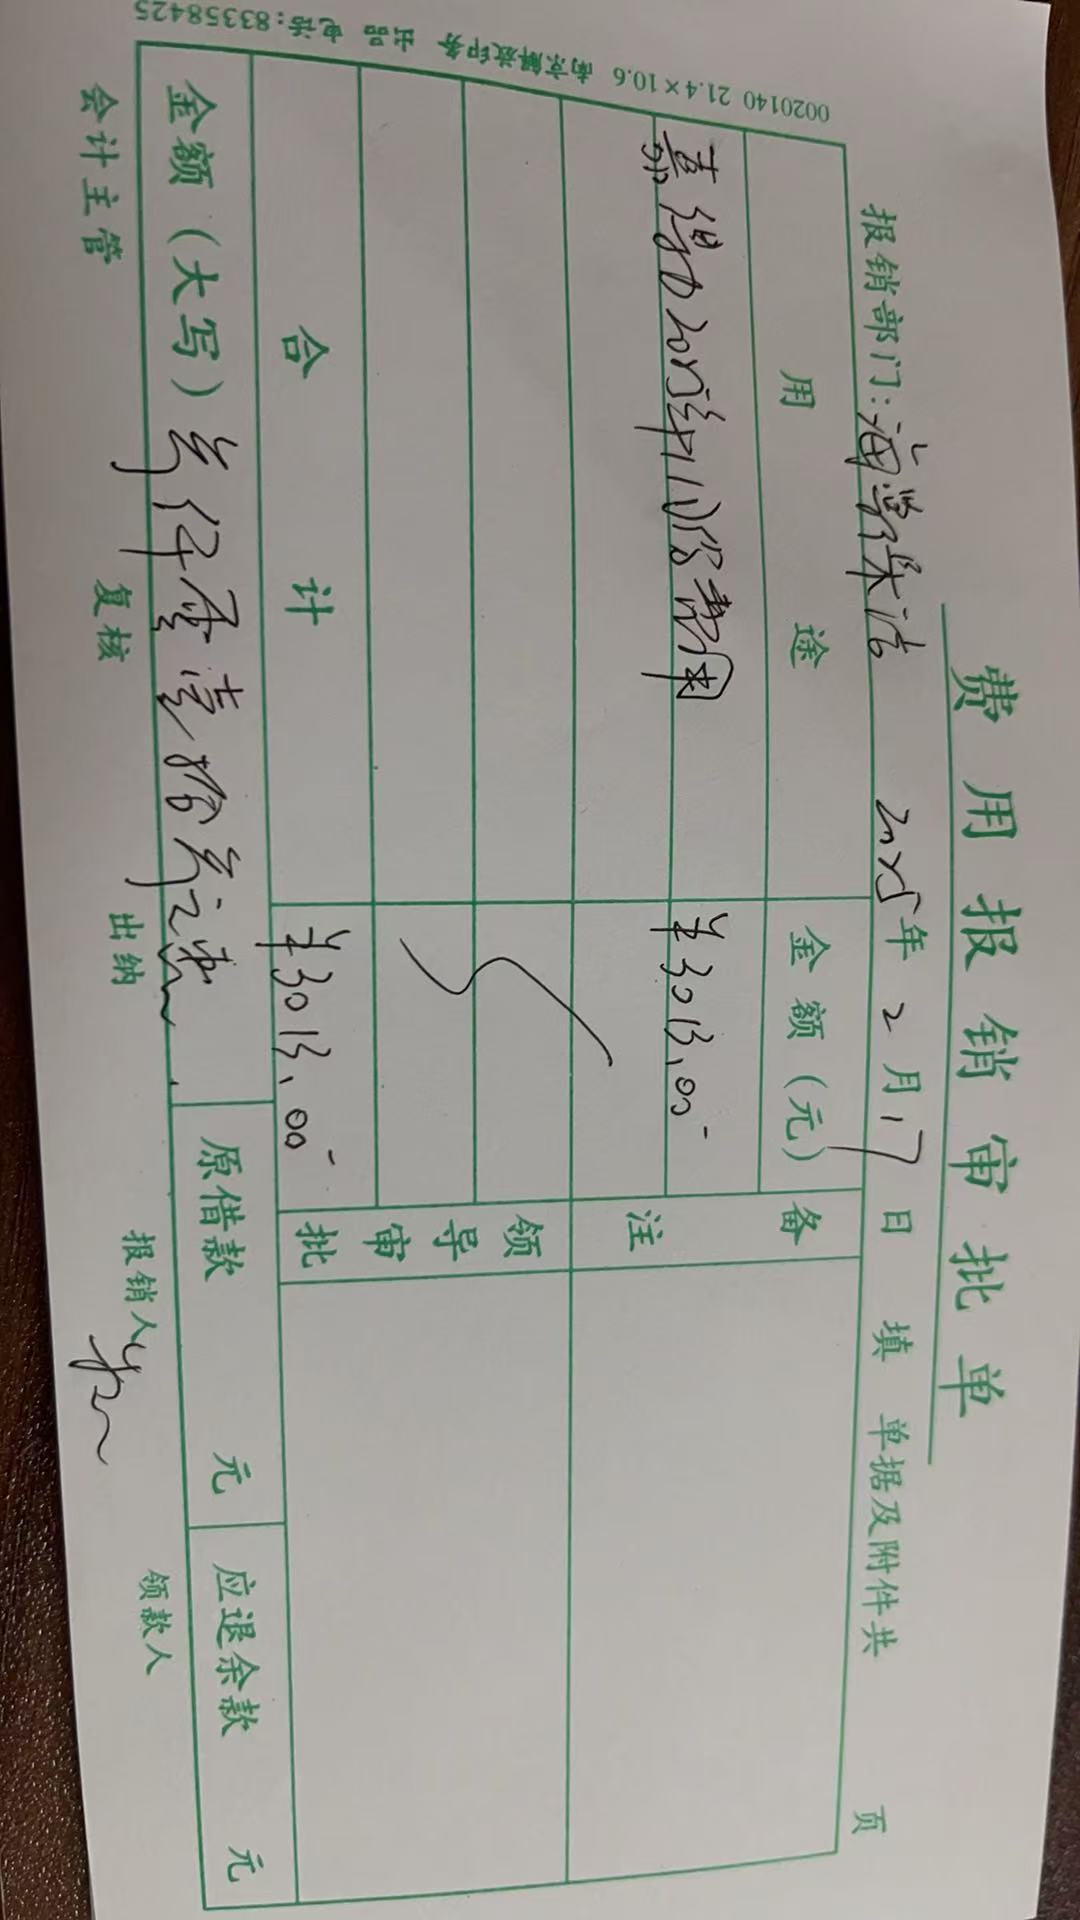 费用报销审批单
报销部门: 2025年2月17日 填 单据及附件共 页
用途 金额(元) 备注
2025年1月 费用 ¥3013.00
领导审批
合计 ¥3013.00
金额(大写)叁仟零壹拾叁元 原借款 元 应退余款 元
会计主管 复核 出纳 报销人 领款人
0020140 21.4×10.6 南京解放印务 出品 电话:83358425